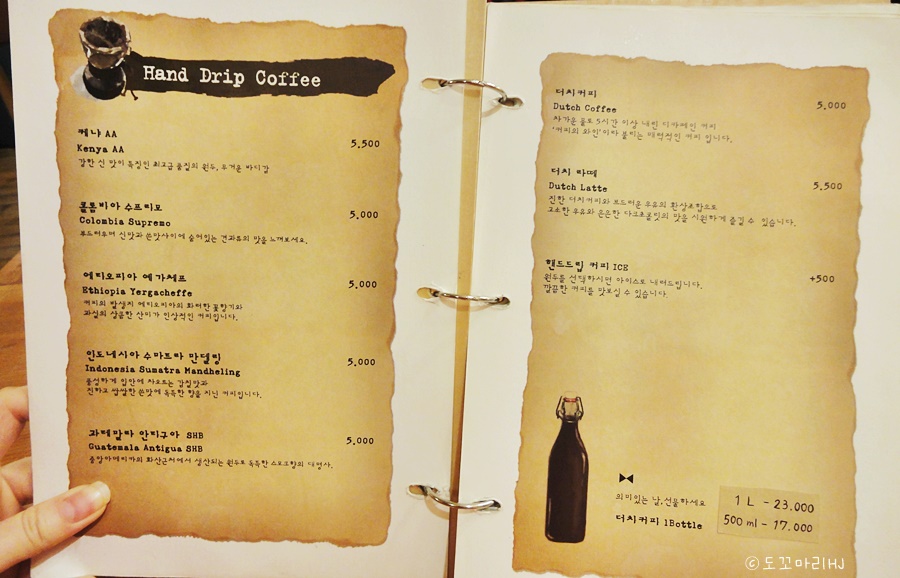 Hand Drip Coffee
케냐 AA
Kenya AA
5,500
강한 신 맛이 특징인 최고급 품질의 원두, 무거운 바디감
콜롬비아 수프리모
Colombia Supremo
5,000
부드러우며 신맛과 쓴맛사이에 숨어있는 견과류의 맛을 느껴보세요.
에티오피아 예가체프
Ethiopia Yergacheffe
5,000
커피의 발생지 에티오피아의 화려한 꽃향기와
과실의 상큼한 산미가 인상적인 커피입니다.
인도네시아 수마트라 만델링
Indonesia Sumatra Mandheling
5,000
풍성하게 입안에 차오르는 감칠맛과
진하고 쌉쌀한 쓴맛에 독특한 향을 지닌 커피입니다.
과테말라 안티구아 SHB
Guatemala Antigua SHB
5,000
중앙아메리카의 화산근처에서 생산되는 원두로 독특한 스모크향의 대명사.
더치커피
Dutch Coffee
5,000
차가운 물로 5시간 이상 내린 디카페인 커피
'커피의 와인'이라 불리는 매력적인 커피 입니다.
더치 라떼
Dutch Latte
5,500
진한 더치커피와 부드러운 우유의 환상조합으로
고소한 우유와 은은한 다크초콜릿의 맛을 시원하게 즐길 수 있습니다.
핸드드립 커피 ICE
+500
원두를 선택하시면 아이스로 내려드립니다.
깔끔한 커피를 맛보실 수 있습니다.
의미있는 날,선물하세요
더치커피 1Bottle
1 L - 23.000
500 ml - 17.000
ⓒ도꼬마리HJ